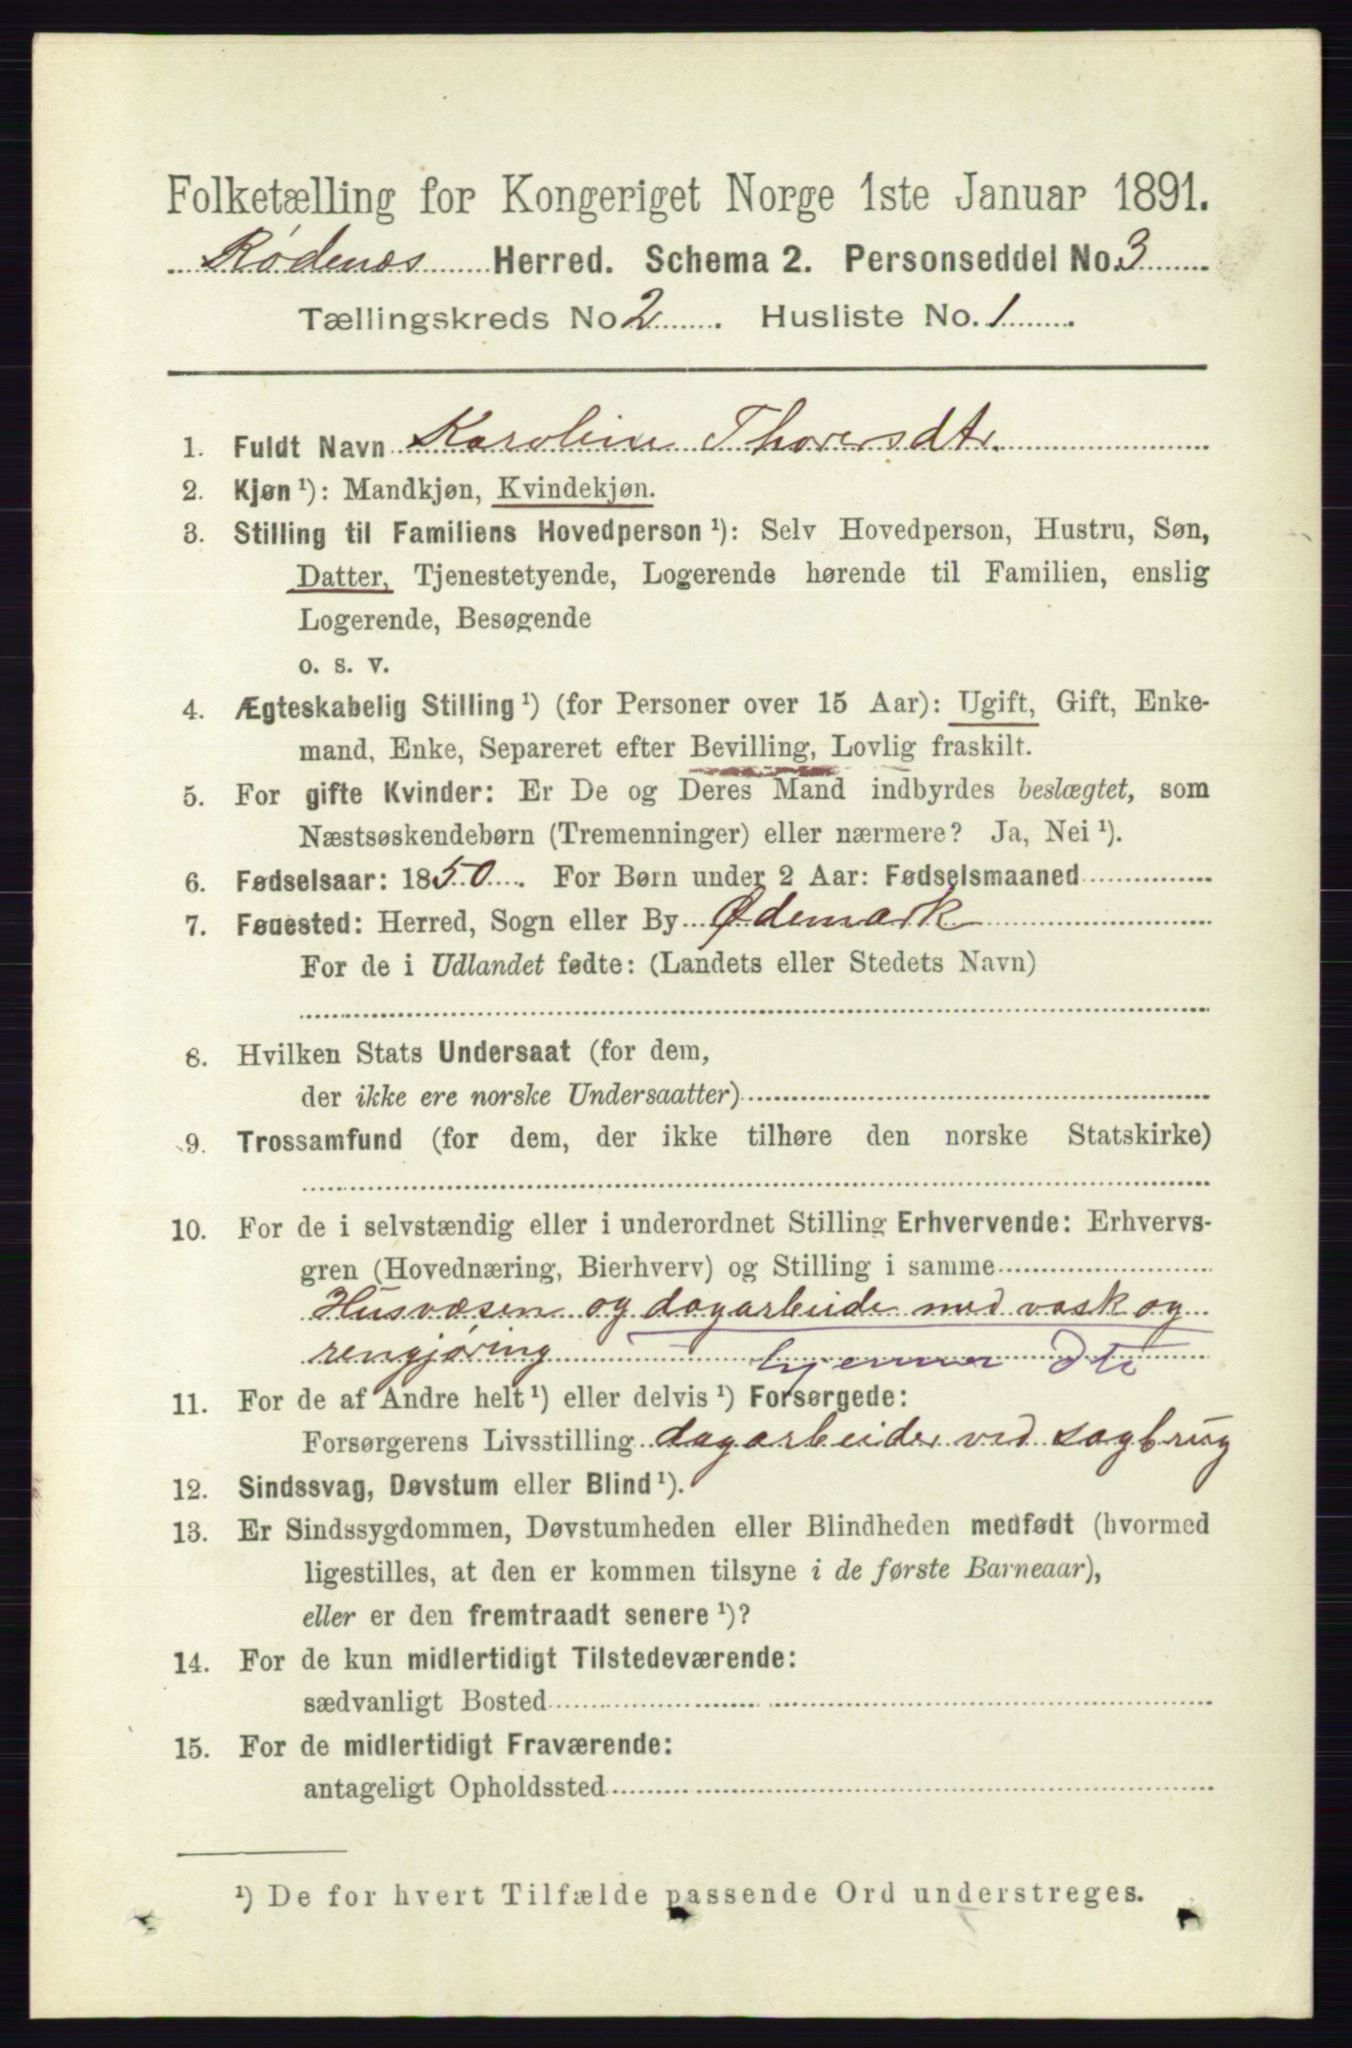 Folketælling for Kongeriget Norge 1ste Januar 1891.
Rødenæs Herred. Schema 2. Personseddel No. 3
Tællingskreds No 2. Husliste No. 1.
1. Fuldt Navn Karoline Thoresdtr.
2. Kjøn ¹): Mandkjøn, Kvindekjøn.
3. Stilling til Familiens Hovedperson ¹): Selv Hovedperson, Hustru, Søn,
Datter, Tjenestetyende, Logerende hørende til Familien, enslig
Logerende, Besøgende
o. s. v.
4. Ægteskabelig Stilling ¹) (for Personer over 15 Aar): Ugift, Gift, Enke-
mand, Enke, Separeret efter Bevilling, Lovlig fraskilt.
5. For gifte Kvinder: Er De og Deres Mand indbyrdes beslægtet, som
Næstsøskendebørn (Tremenninger) eller nærmere? Ja, Nei ¹).
6. Fødselsaar: 1850. For Børn under 2 Aar: Fødselsmaaned
7. Fødested: Herred, Sogn eller By Ødemark
For de i Udlandet fødte: (Landets eller Stedets Navn)
8. Hvilken Stats Undersaat (for dem,
der ikke ere norske Undersaatter)
9. Trossamfund (for dem, der ikke tilhøre den norske Statskirke)
10. For de i selvstændig eller i underordnet Stilling Erhvervende: Erhvervs-
gren (Hovednæring, Bierhverv) og Stilling i samme
Husvæsen og dagarbeide med vask og
rengjøring hjemmev Dtr
11. For de af Andre helt ¹) eller delvis ¹) Forsørgede:
Forsørgerens Livsstilling dagarbeider ved sagbrug
12. Sindssvag, Døvstum eller Blind ¹).
13. Er Sindssygdommen, Døvstumheden eller Blindheden medfødt (hvormed
ligestilles, at den er kommen tilsyne i de første Barneaar),
eller er den fremtraadt senere ¹)?
14. For de kun midlertidigt Tilstedeværende:
sædvanligt Bosted
15. For de midlertidigt Fraværende:
antageligt Opholdssted
¹) De for hvert Tilfælde passende Ord understreges.